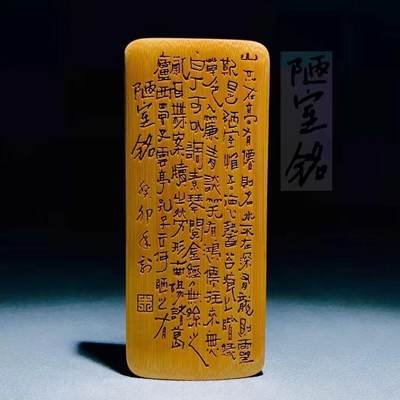 陋室銘
山不在高有僊則名水不在深有龍則靈
斯是陋室惟吾德馨苔痕上階綠
草色入簾青談笑有鴻儒往來無
白丁可以調素琴閱金經無絲竹之
亂耳無案牘之勞形南陽諸葛
廬西蜀子雲亭孔子云何陋之有
陋室銘
癸卯年刻